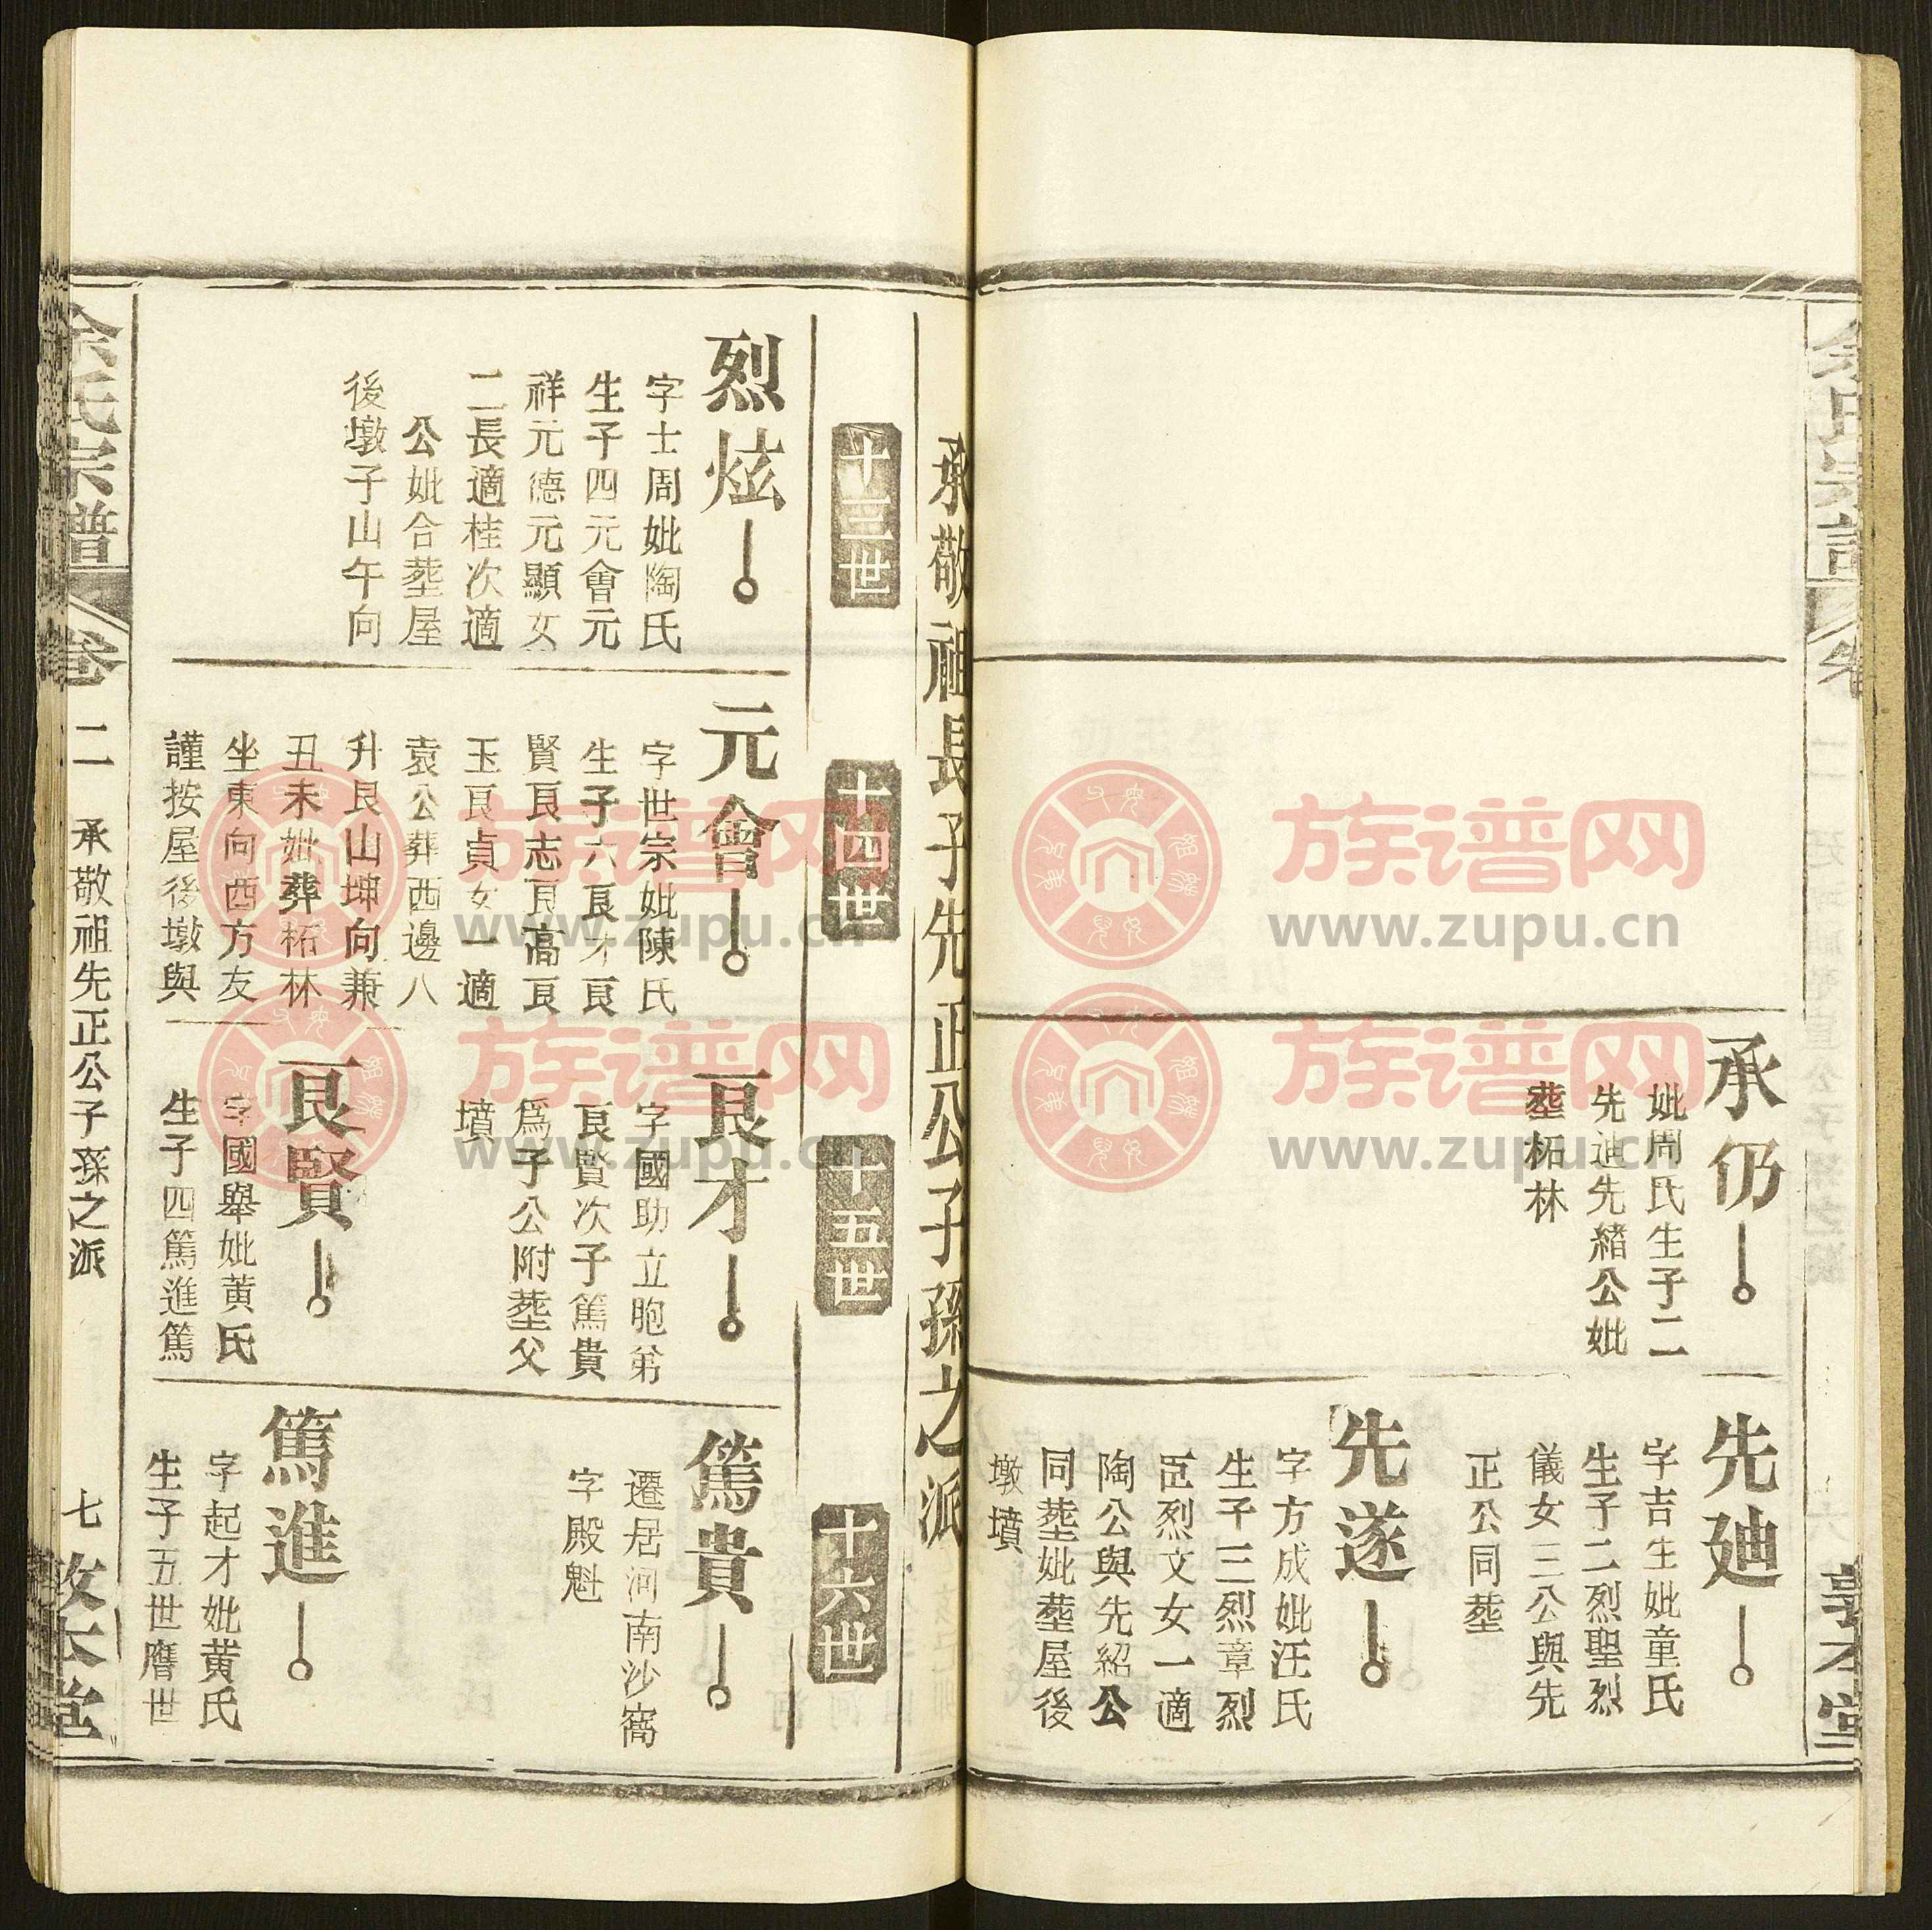 承仍
妣周氏生子二
先迪先緒公妣
塟柘林
先廸
字吉生妣童氏
生子二烈聖烈
儀女三公與先
正公同塟
先遂
字方成妣汪氏
生子三烈章烈
臣烈文女一適
陶公與先紹公
同塟妣塟屋後
墩墳
承敬祖長子先正公子孫之派
十三世
十四世
十五世
十六世
烈炫
字士周妣陶氏
生子四元會元
祥元德元顯女
二長適桂次適
公妣合塟屋
後墩子山午向
元會
字世宗妣陳氏
生子六良才良
賢良志良高良
玉良貞女一適
袁公葬西邊八
升艮山坤向兼
丑未妣葬柘林
坐東向西方友
謹按屋後墩與
良才
字國助立胞弟
良賢次子篤貴
爲子公附塟父
墳
良賢
字國舉妣黄氏
生子四篤進篤
篤貴
遷居河南沙窩
字殿魁
篤進
字起才妣黄氏
生子五世膺世
余氏宗譜
卷二
承敬祖先正公子孫之派
七
敦本堂
族谱网
www.zupu.cn
族谱网
www.zupu.cn
族谱网
www.zupu.cn
族谱网
www.zupu.cn